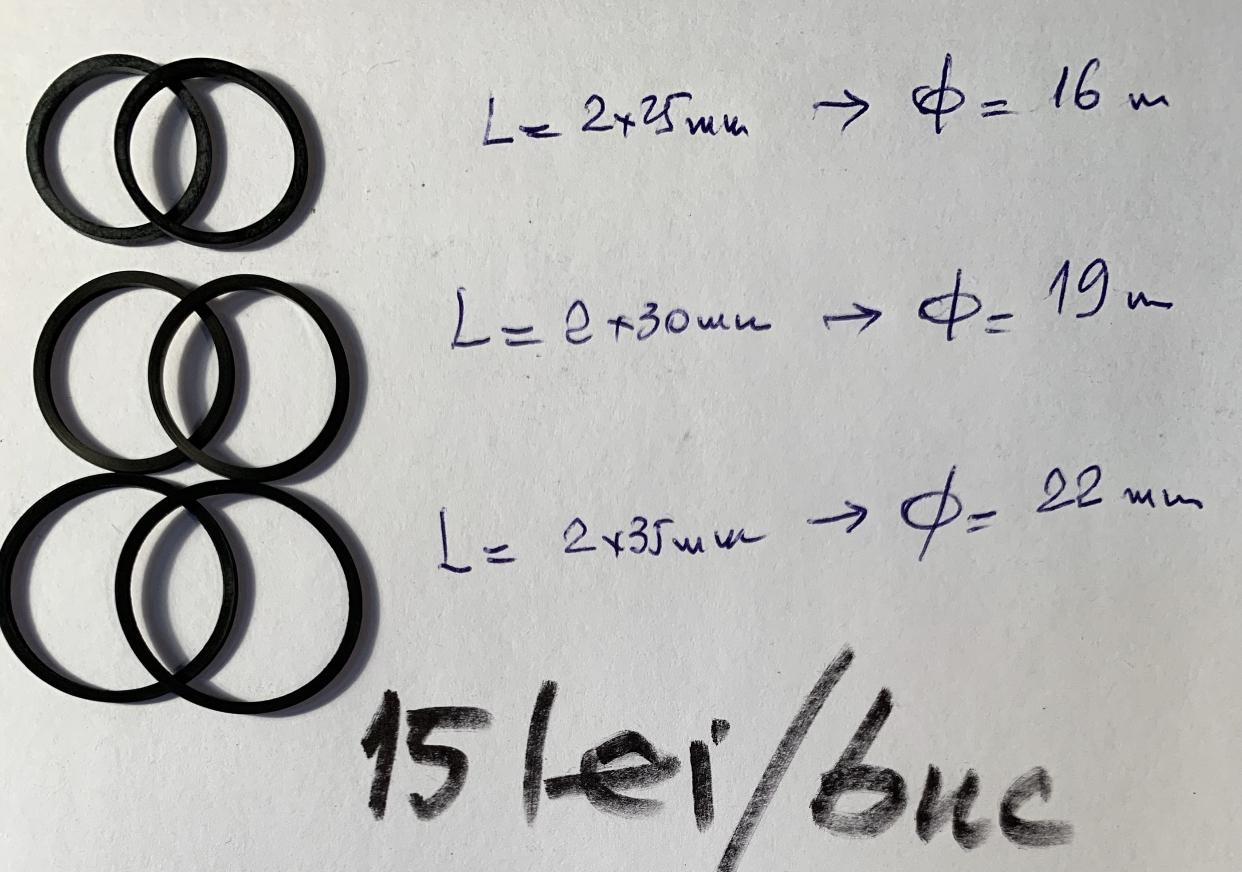 L = 2x25mm → ϕ = 16 m
L = 2x30mm → ϕ = 19 m
L = 2x35mm → ϕ = 22 mm
15 lei/buc